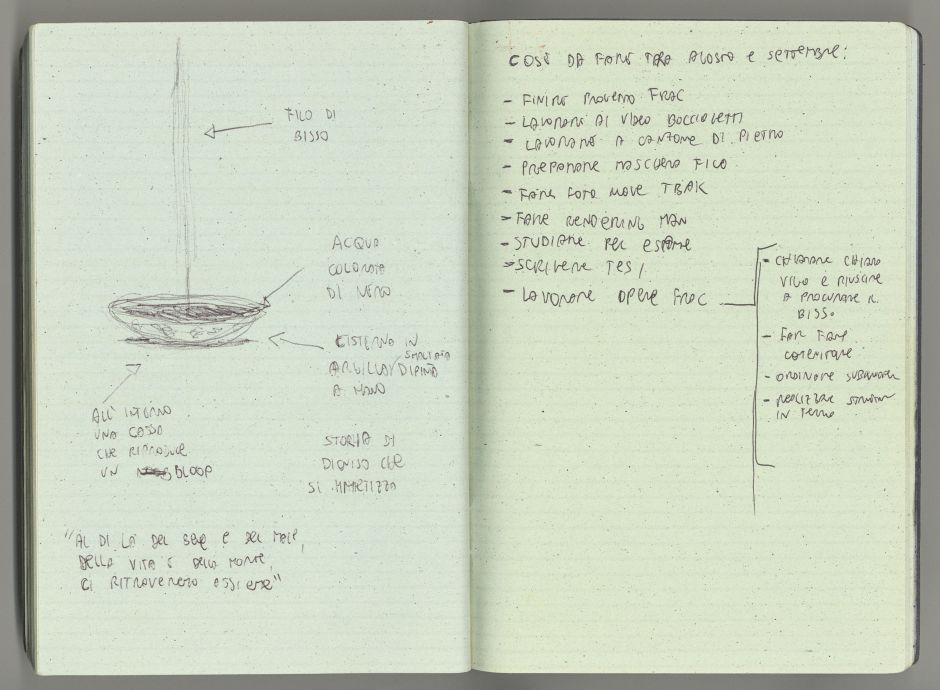 FILO DI
BISSO
ACQUA
COLORATA
DI NERO
CISTERNA IN
ARGILLA SMALTATA
DIPINTA
A MANO
ALL'INTERNO
UNA CASSA
CHE RIPRODUCE
UN BLOOP
STORIA DI
DIONISO CHE
SI
"AL DI LÀ DEL BENE E DEL MALE,
DELLA VITA E DELLA MORTE,
CI RITROVEREMO ASSIEME"
COSE DA FARE TRA AGOSTO E SETTEMBRE:
- FINIRE PROGETTO FRAC
- LAVORARE AI VIDEO
- LAVORARE A CANZONE DI PIETRO
- PREPARARE MASCHERA FICO
- FARE FOTO MOVE TBAK
- FARE RENDERING MAN
- STUDIARE PER ESAME
- SCRIVERE TESI
- LAVORARE OPERE FRAC
- CHIAMARE CHIARA
VIGO E RIUSCIRE
A PROCURARE IL
BISSO
- FAR FARE
CONTENITORE
- ORDINARE SUBWOOFER
- REALIZZARE STRUTTURA
IN FERRO